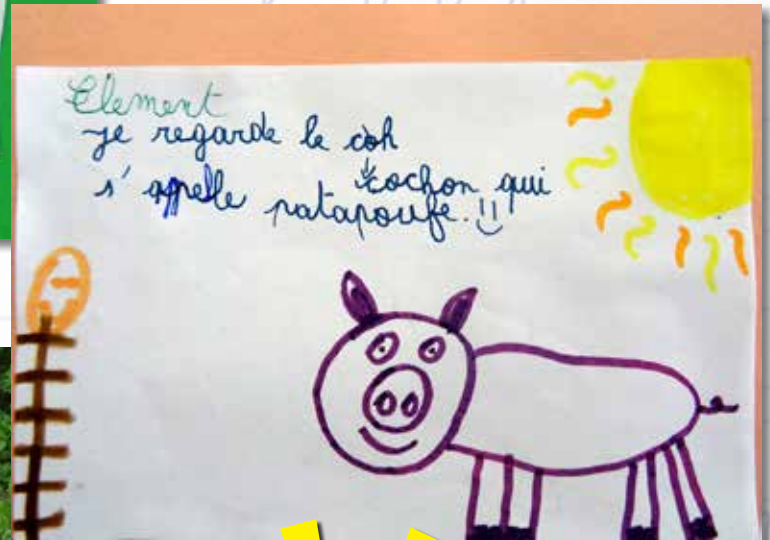 Clement
je regarde le coh
cochon qui
s'appelle patapoufe.